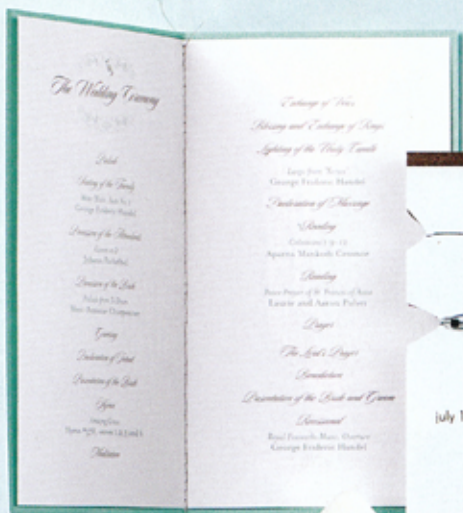 The Wedding Ceremony
Prelude
Seating of the Family
George Frideric Handel
Procession of the Attendants
Canon in D
Johann Pachelbel
Procession of the Bride
Marc-Antoine Charpentier
Greeting
Declaration of Intent
Presentation of the Bride
Hymn
Exchange of Vows
Blessing and Exchange of Rings
Lighting of the Unity Candle
Largo from "Xerxes"
George Frideric Handel
Declaration of Marriage
Reading
Aparna Mankush Cressnor
Reading
Peace Prayer of St. Francis of Assisi
Laurie and Aaron
Prayer
The Lord's Prayer
Benediction
Presentation of the Bride and Groom
Recessional
Royal Fireworks Music Overture
George Frideric Handel
july 1